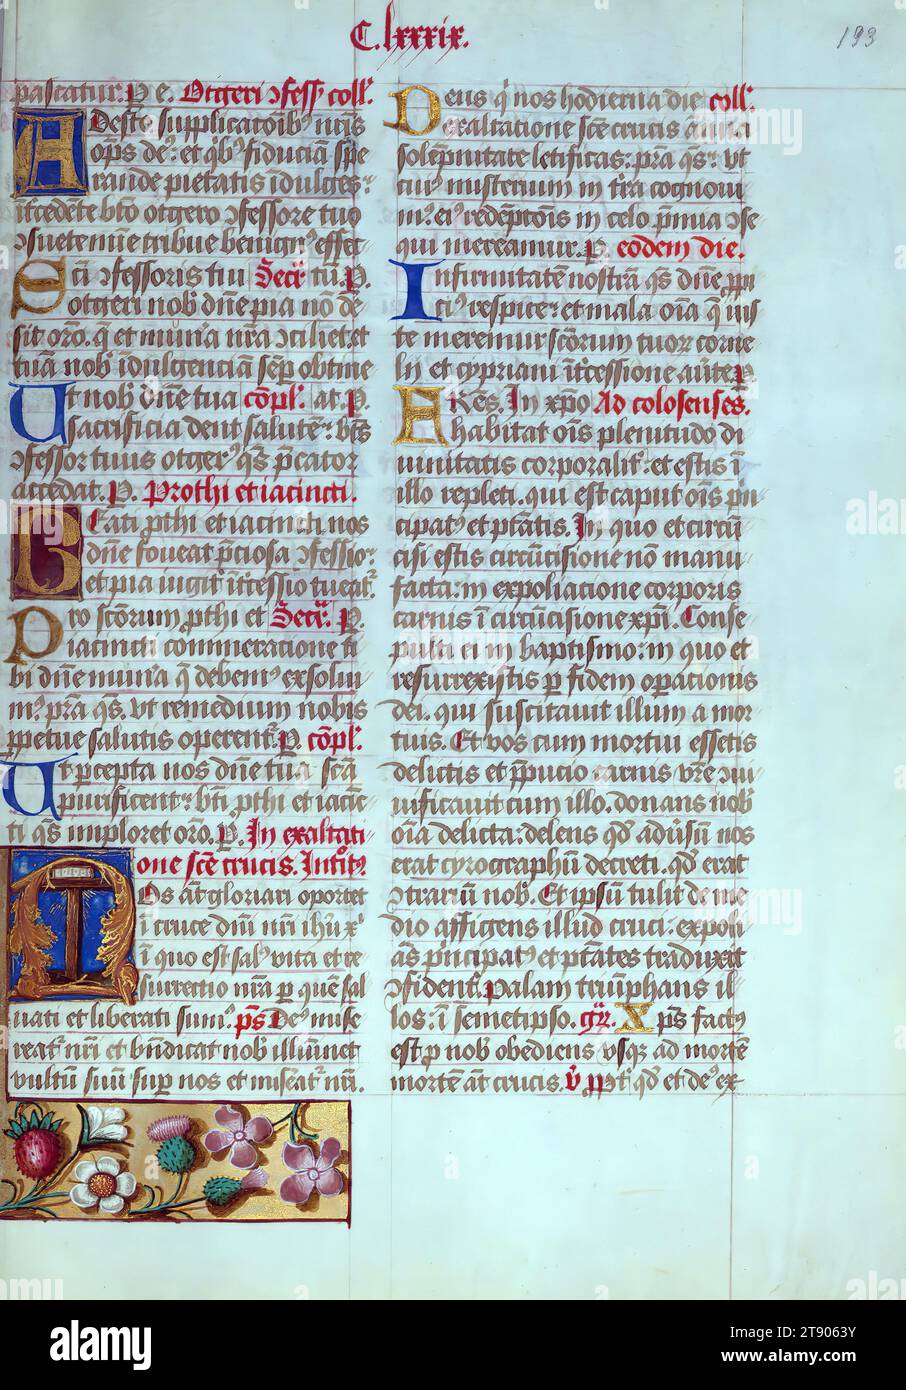 C. lxxxix.
193
pascatur. P e. Otgeri ɔfess' coll'.
Adesto supplicatōib' nr̄is
op̄s de': et q̄b' fiduciā spe
rande pietatis īdulges:
ītcedēte bt̄o otgero ɔfessore tuo
ɔsuete mīe tribue benign' effec
Sc̄i ɔfessoris tui Secr̄. tū. P.
otgeri nob' dn̄e pia nō de
sit orō. q̄ et mun'a nr̄a ɔciliet. et
tuā nob' īdulgenciā sēp obtine
Ut nob' dn̄e tua cōpl'. at. P.
sacrificia dent salutē: bt̄s
ɔfessor tuus otger' q̄s p̄cator
accedat. P. Prothi et iacincti.
Beati p̄thi et iacincti nos
dn̄e foueat p̄ciosa ɔfessio:
et pia iugit' īt'cessio tueat'.
Pro sc̄torum p̄thi et Secr̄. P.
iacincti commeratione ti
bi dn̄e mun'a q̄ debem' exsolui
m': pr̄a q̄s. vt remedium nobis
ppetue salutis operent'. P. cōpl'.
Ut p̄cepta nos dn̄e tua sc̄a
purificent: bt̄i p̄thi et iacīc
ti q̄s imploret orō. P. In exaltati
one sc̄e crucis. Introit'
Nos aūt gloriari oportet
ī cruce dn̄i nr̄i ih'u x'
ī quo est sal' vita et re
surrectio nr̄a p quē sal
uati et liberati sum'. ps̄ De' mise
reat' nr̄i et bn̄dicat nob' illūinet
vultū suū sup nos et miseat' nr̄i.
Deus q' nos hodierna die coll'.
exaltatione sc̄e crucis annua
solēpnitate letificas: pr̄a q̄s: vt
cui' misterium in tr̄a cognoui
m': ei' redēptōis in celo p̄mia ɔse
qui mereamur. P. eodem die.
Infirmitatē nostrā q̄s dn̄e p̄pi
ci' respice: et mala oīa q̄ ius
te meremur sc̄orum tuor' corne
lii et cypriani īt'cessione au'te. P
FRES. In xp̄o Ad colosenses.
habitat oīs plenitudo di
uinitatis corporalit'. et estis ī
illo repleti. qui est caput oīs pn̄
cipat' et pt̄atis. In quo et circū
cisi estis circūcisione nō manu
facta: in expoliatione corporis
carnis ī circūcisione xp̄i. Conse
pulti ei in baptismo: in quo et
resurrexistis p fidem op̄ationis
dei. qui suscitauit illum a mor
tuis. Et vos cum mortui essetis
delictis et p̄pucio carnis vr̄e ɔui
uificauit cum illo. donans nob'
oīa delicta: delens qd' adu'sū nos
erat cyrographū decreti. qd' erat
ɔtrariū nob'. Et ipsū tulit de me
dio affigens illud cruci: expoli
ās p̄ncipat' et pt̄ates traduxit
ɔfident'. palam triūphans il
los: ī semetipso. gr̄. Xp̄s fact'
est p nob' obediens vsq; ad mortē
mortē aūt crucis. V̄ Ppt' qd' et de' ex
alamy
Image ID: 2T9063Y
www.alamy.com